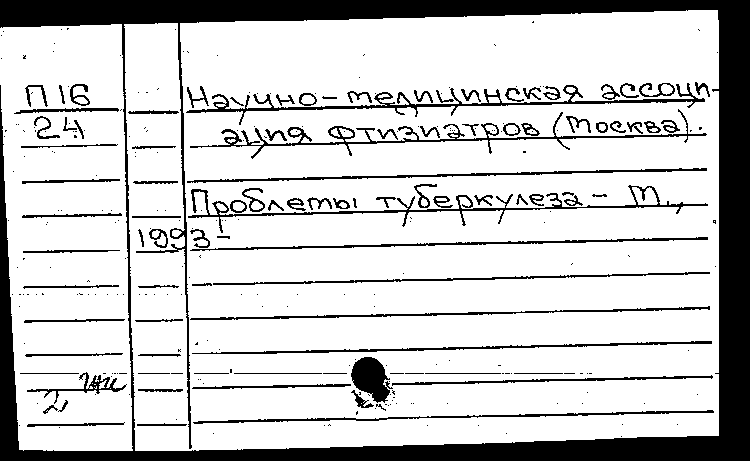 П16 Научно-медицинская ассоци-
24 ация фтизиатров (Москва).
Проблемы туберкулеза - М.,
1993-
2